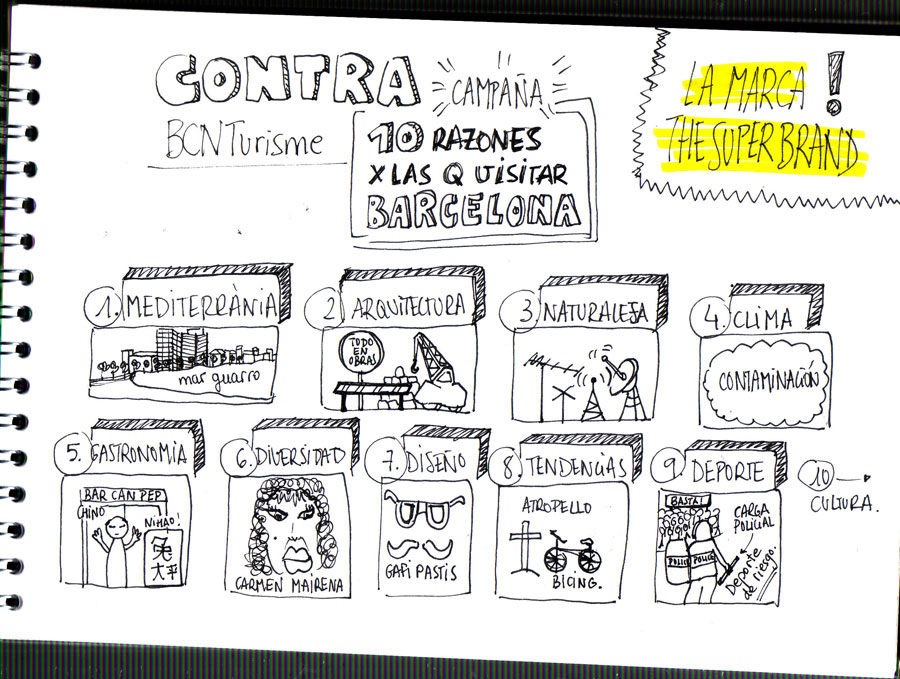 CONTRA
CAMPAÑA
BCNTurisme
10 RAZONES
X LAS Q VISITAR
BARCELONA
LA MARCA !
THE SUPER BRAND
1. MEDITERRÀNIA
mar guarro
2 ARQUITECTURA
TODO
EN
OBRAS
3. NATURALEJA
4. CLIMA
CONTAMINACIÓN
5. GASTRONOMIA
BAR CAN PEP
CHINO
NIHAO!
兔
大平
6. DIVERSIDAD
CARMEN MAIRENA
7. DISEÑO
GAFI PASTIS
8. TENDENCIAS
ATROPELLO
BICING.
9. DEPORTE
BASTA!
CARGA
POLICIAL
POLICE
POLICE
Deporte
de riesgo.
10 →
CULTURA.